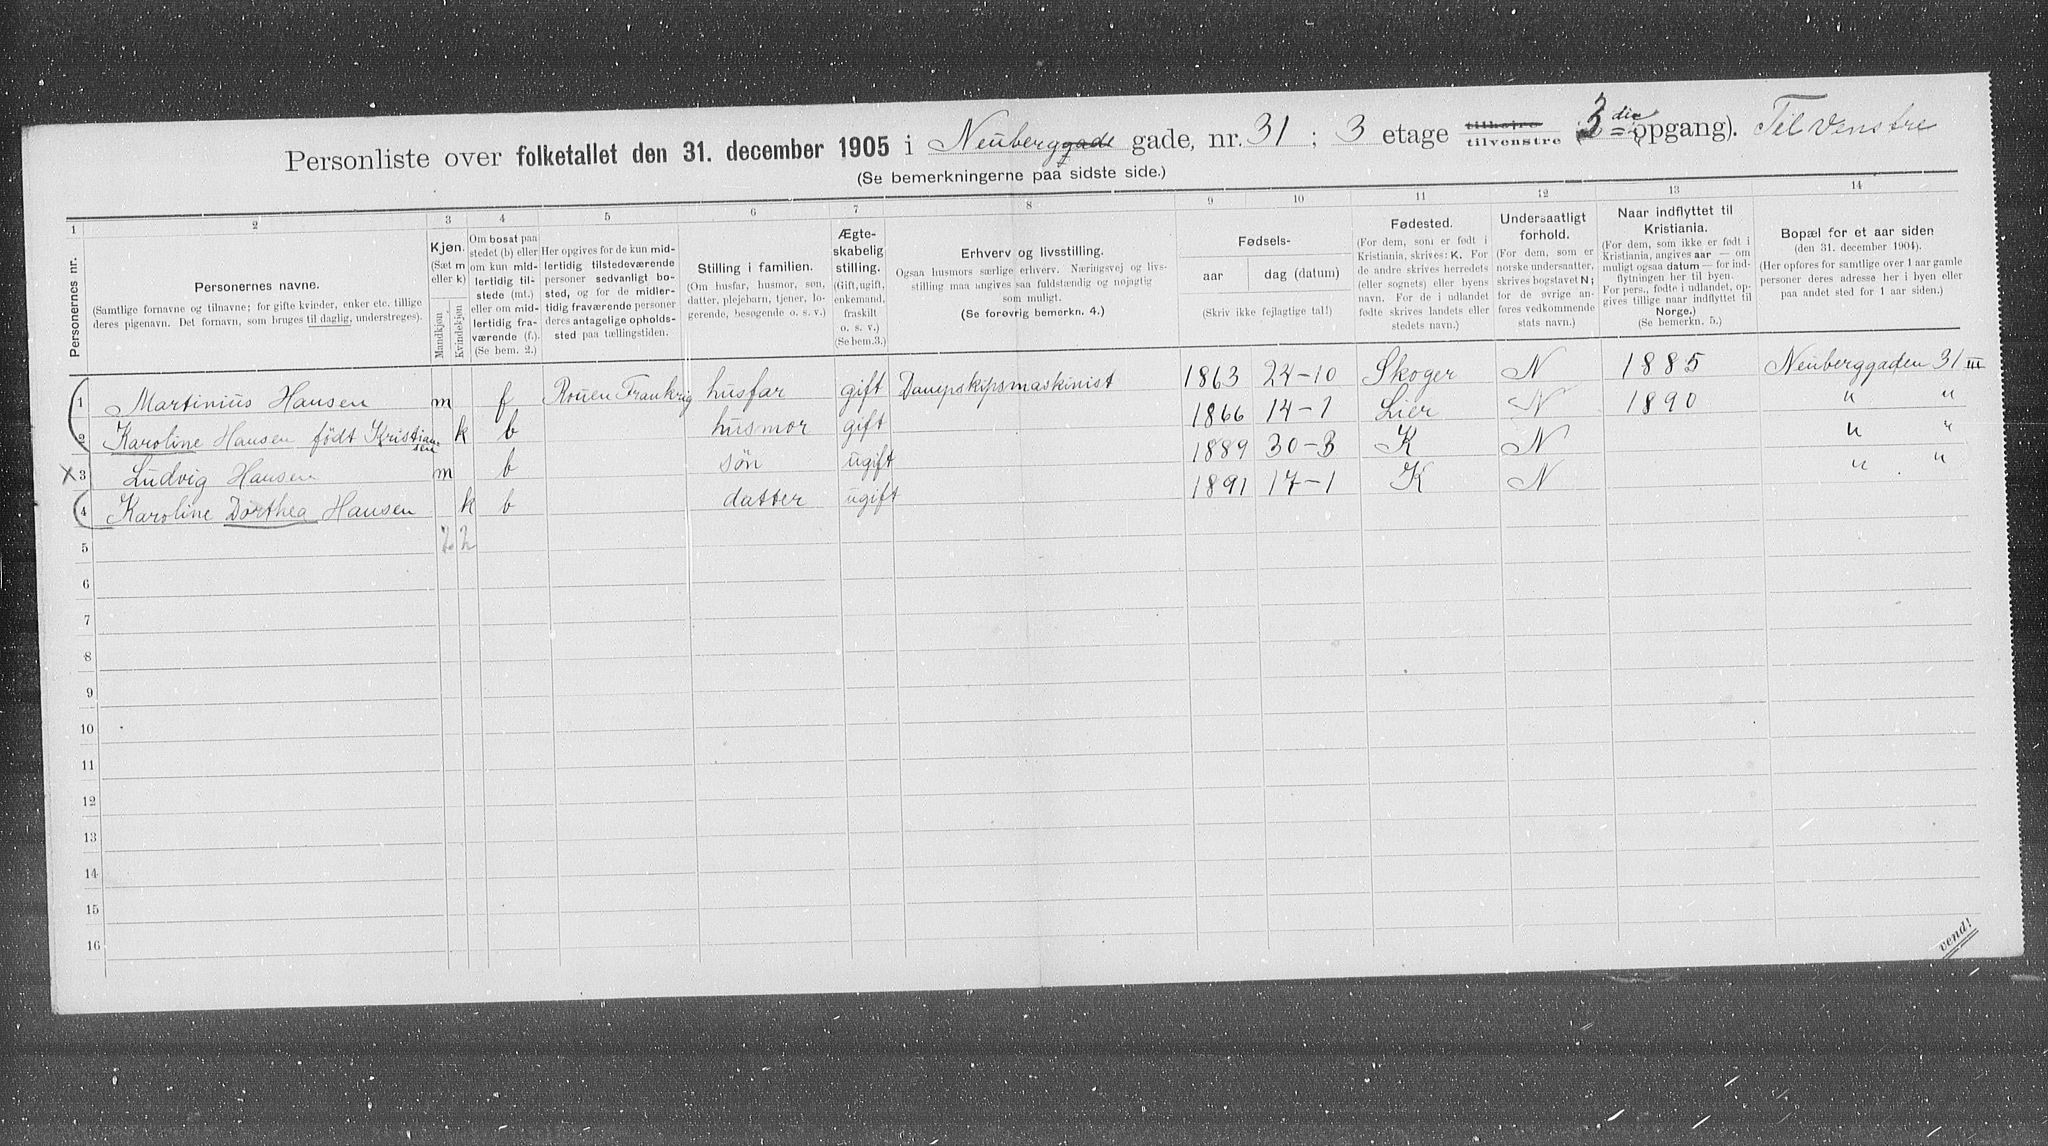 Personliste over folketallet den 31. december 1905 i Neuberggade gade, nr. 31 ; 3 etage tilhøjre tilvenstre 3die opgang). Til venstre
(Se bemerkningerne paa sidste side.)
1 2 3 4 5 6 7 8 9 10 11 12 13 14
Personernes nr.
Personernes navne.
(Samtlige fornavne og tilnavne; for gifte kvinder, enker etc. tillige
deres pigenavn. Det fornavn, som bruges til daglig, understreges).
Kjøn.
(Sæt m
eller k)
Mandkjøn
Kvindekjøn
Om bosat paa
stedet (b) eller
om kun mid-
lertidig til-
stede (mt.)
eller om mid-
lertidig fra-
værende (f.).
(Se bem. 2.)
Her opgives for de kun mid-
lertidig tilstedeværende
personer sedvanligt bo-
sted, og for de midler-
tidig fraværende personer
deres antagelige opholds-
sted paa tællingstiden.
Stilling i familien.
(Om husfar, husmor, søn,
datter, plejebarn, tjener, lo-
gerende, besøgende o. s. v.)
Ægte-
skabelig
stilling.
(Gift, ugift,
enkemand,
fraskilt
o. s. v.)
(Se bem.3.)
Erhverv og livsstilling.
Ogsaa husmors særlige erhverv. Næringsvej og livs-
stilling maa angives saa fuldstændig og nøjagtig
som muligt.
(Se forøvrig bemerkn. 4.)
Fødsels-
aar
dag (datum)
(Skriv ikke fejlagtige tal!)
Fødested.
(For dem, som er født i
Kristiania, skrives: K. For
de andre skrives herredets
(eller sognets) eller byens
navn. For de i udlandet
fødte skrives landets eller
stedets navn.)
Undersaatligt
forhold.
(For dem, som er
norske undersaatter,
skrives bogstavet N;
for de øvrige an-
føres vedkommende
stats navn.)
Naar indflyttet til
Kristiania.
(For dem, som ikke er født i
Kristiania, angives aar — om
muligt ogsaa datum — for ind-
flytningen her til byen.
For pers., fødte i udlandet, op-
gives tillige naar indflyttet til
Norge.)
(Se bemerkn. 5.)
Bopæl for et aar siden
(den 31. december 1904).
(Her opføres for samtlige over 1 aar gamle
personer deres adresse her i byen eller
paa andet sted for 1 aar siden.)
1 Martinius Hansen m f Rouen Frankrig husfar gift Dampskipsmaskinist 1863 24-10 Skoger N 1885 Neuberggaden 31 III
2 Karoline Hansen født Kristian-sen k b husmor gift 1866 14-7 Lier N 1890 " "
x 3 Ludvig Hansen m b søn ugift 1889 30-3 K N " "
4 Karoline Dorthea Hansen k b datter ugift 1891 17-1 K N " "
5 2 2
6
7
8
9
10
11
12
13
14
15
16
vend!